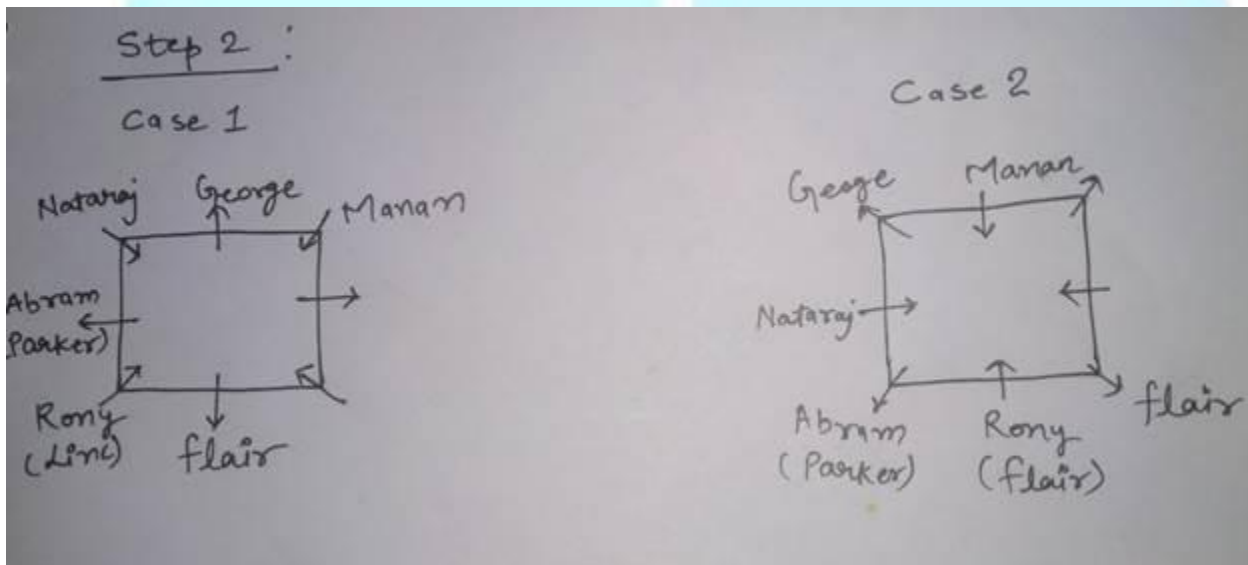 Step 2 :
Case 1
Nataraj George Manan
Abram
(Parker)
Rony
(Linc) flair
Case 2
Geoge Manan
Nataraj
Abram Rony flair
(Parker) (Flair)